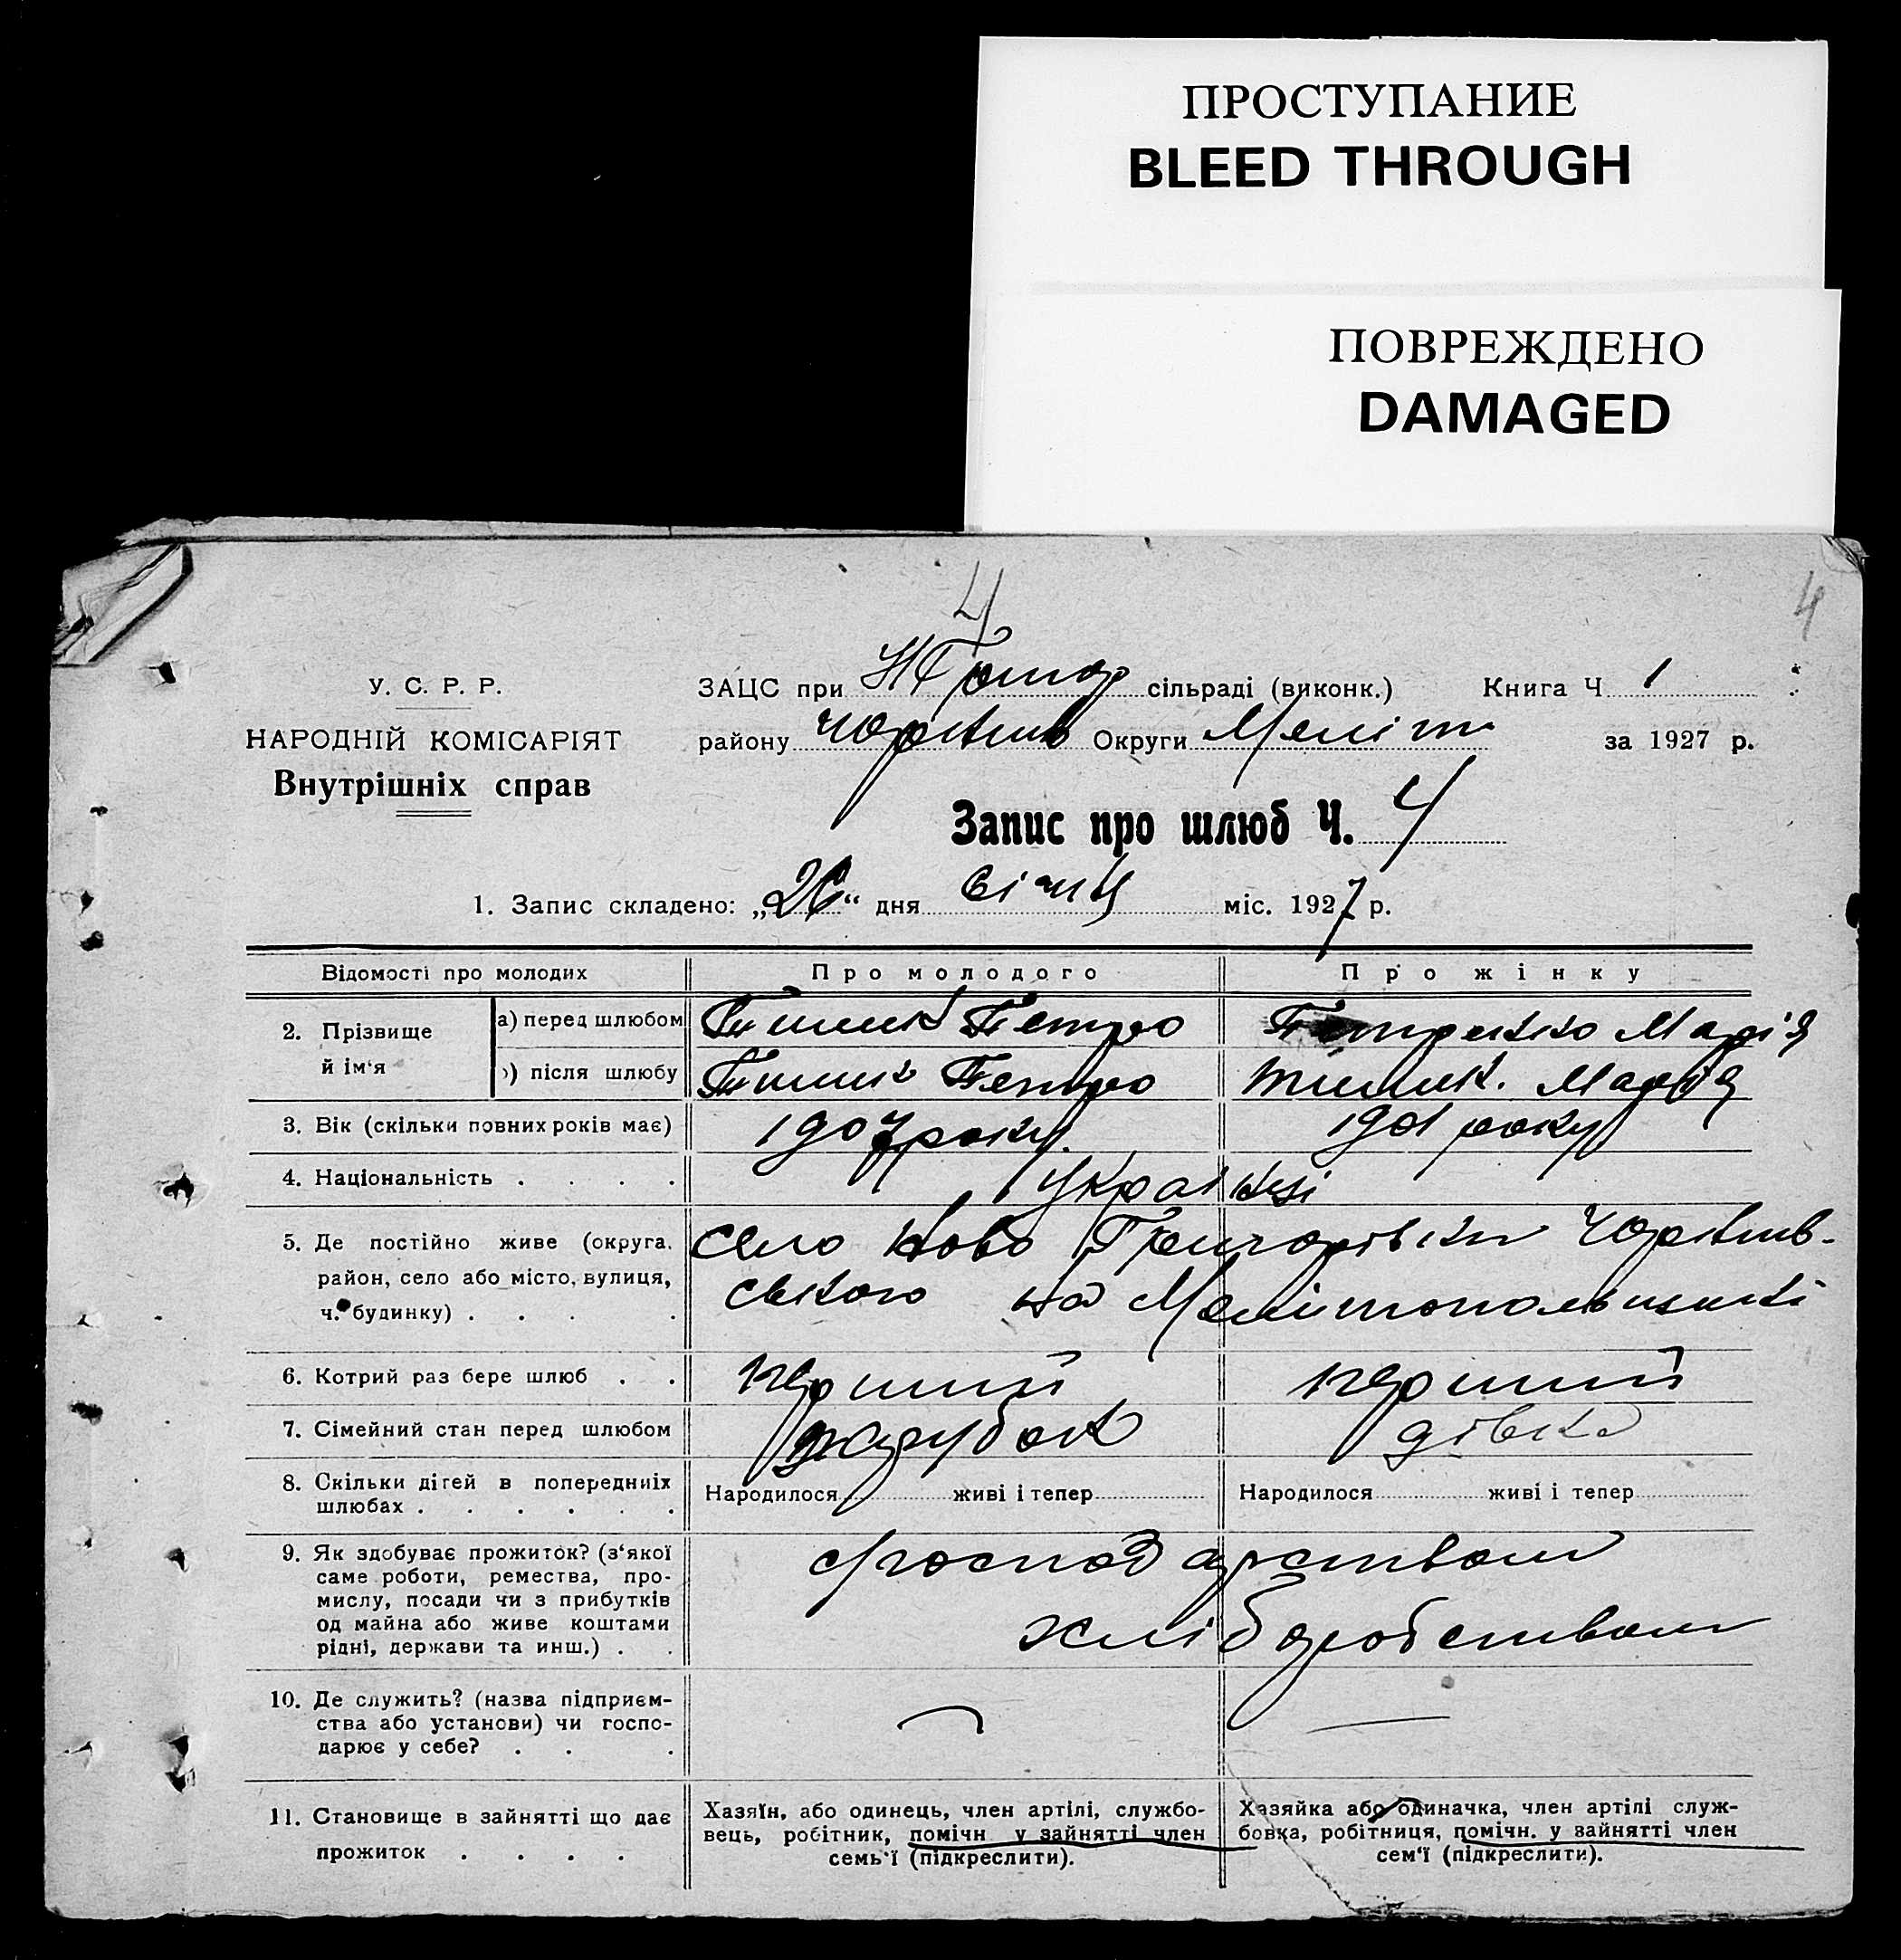 ПРОСТУПАНИЕ
BLEED THROUGH
ПОВРЕЖДЕНО
DAMAGED
4
4
У. С. Р. Р.
НАРОДНІЙ КОМІСАРІЯТ
Внутрішніх справ
ЗАЦС при НГригор сільраді (виконк.) Книга Ч 1
району Округи Меліт за 1927 р.
Запис про шлюб Ч. 4
1. Запис складено: „26“ дня січня міс. 1927 р.
Відомості про молодих Про молодого Про жінку
2. Прізвище й ім‘я
а) перед шлюбом Тишик Петро Петренко Марія
) після шлюбу Тишик Петро Тишик. Марія
3. Вік (скільки повних років має) 1907 року. 1901 року
4. Національність . . . . українці
5. Де постійно живе (округа, село Ново Григорівка
район, село або місто, вулиця, ського на Мелітопольщині
ч. будинку) . . . .
6. Котрий раз бере шлюб . . перший перший
7. Сімейний стан перед шлюбом парубок дівка
8. Скільки дітей в попередниіх
шлюбах . . . . . . Народилося живі і тепер Народилося живі і тепер
9. Як здобуває прожиток? (з‘якої господарством
саме роботи, ремества, про-
мислу, посади чи з прибутків
од майна або живе коштами хліборобством
рідні, держави та инш.) . .
10. Де служить? (назва підприєм-
ства або установи) чи госпо-
дарює у себе? . . .
11. Становище в зайнятті що дає
прожиток . . . .
Хазяїн, або одинець, член артілі, службо-
вець, робітник, помічн у зайнятті член
семь‘ї (підкреслити).
Хазяйка або одиначка, член артілі служ-
бовка, робітниця, помічн. у зайнятті член
сем‘ї (підкреслити).